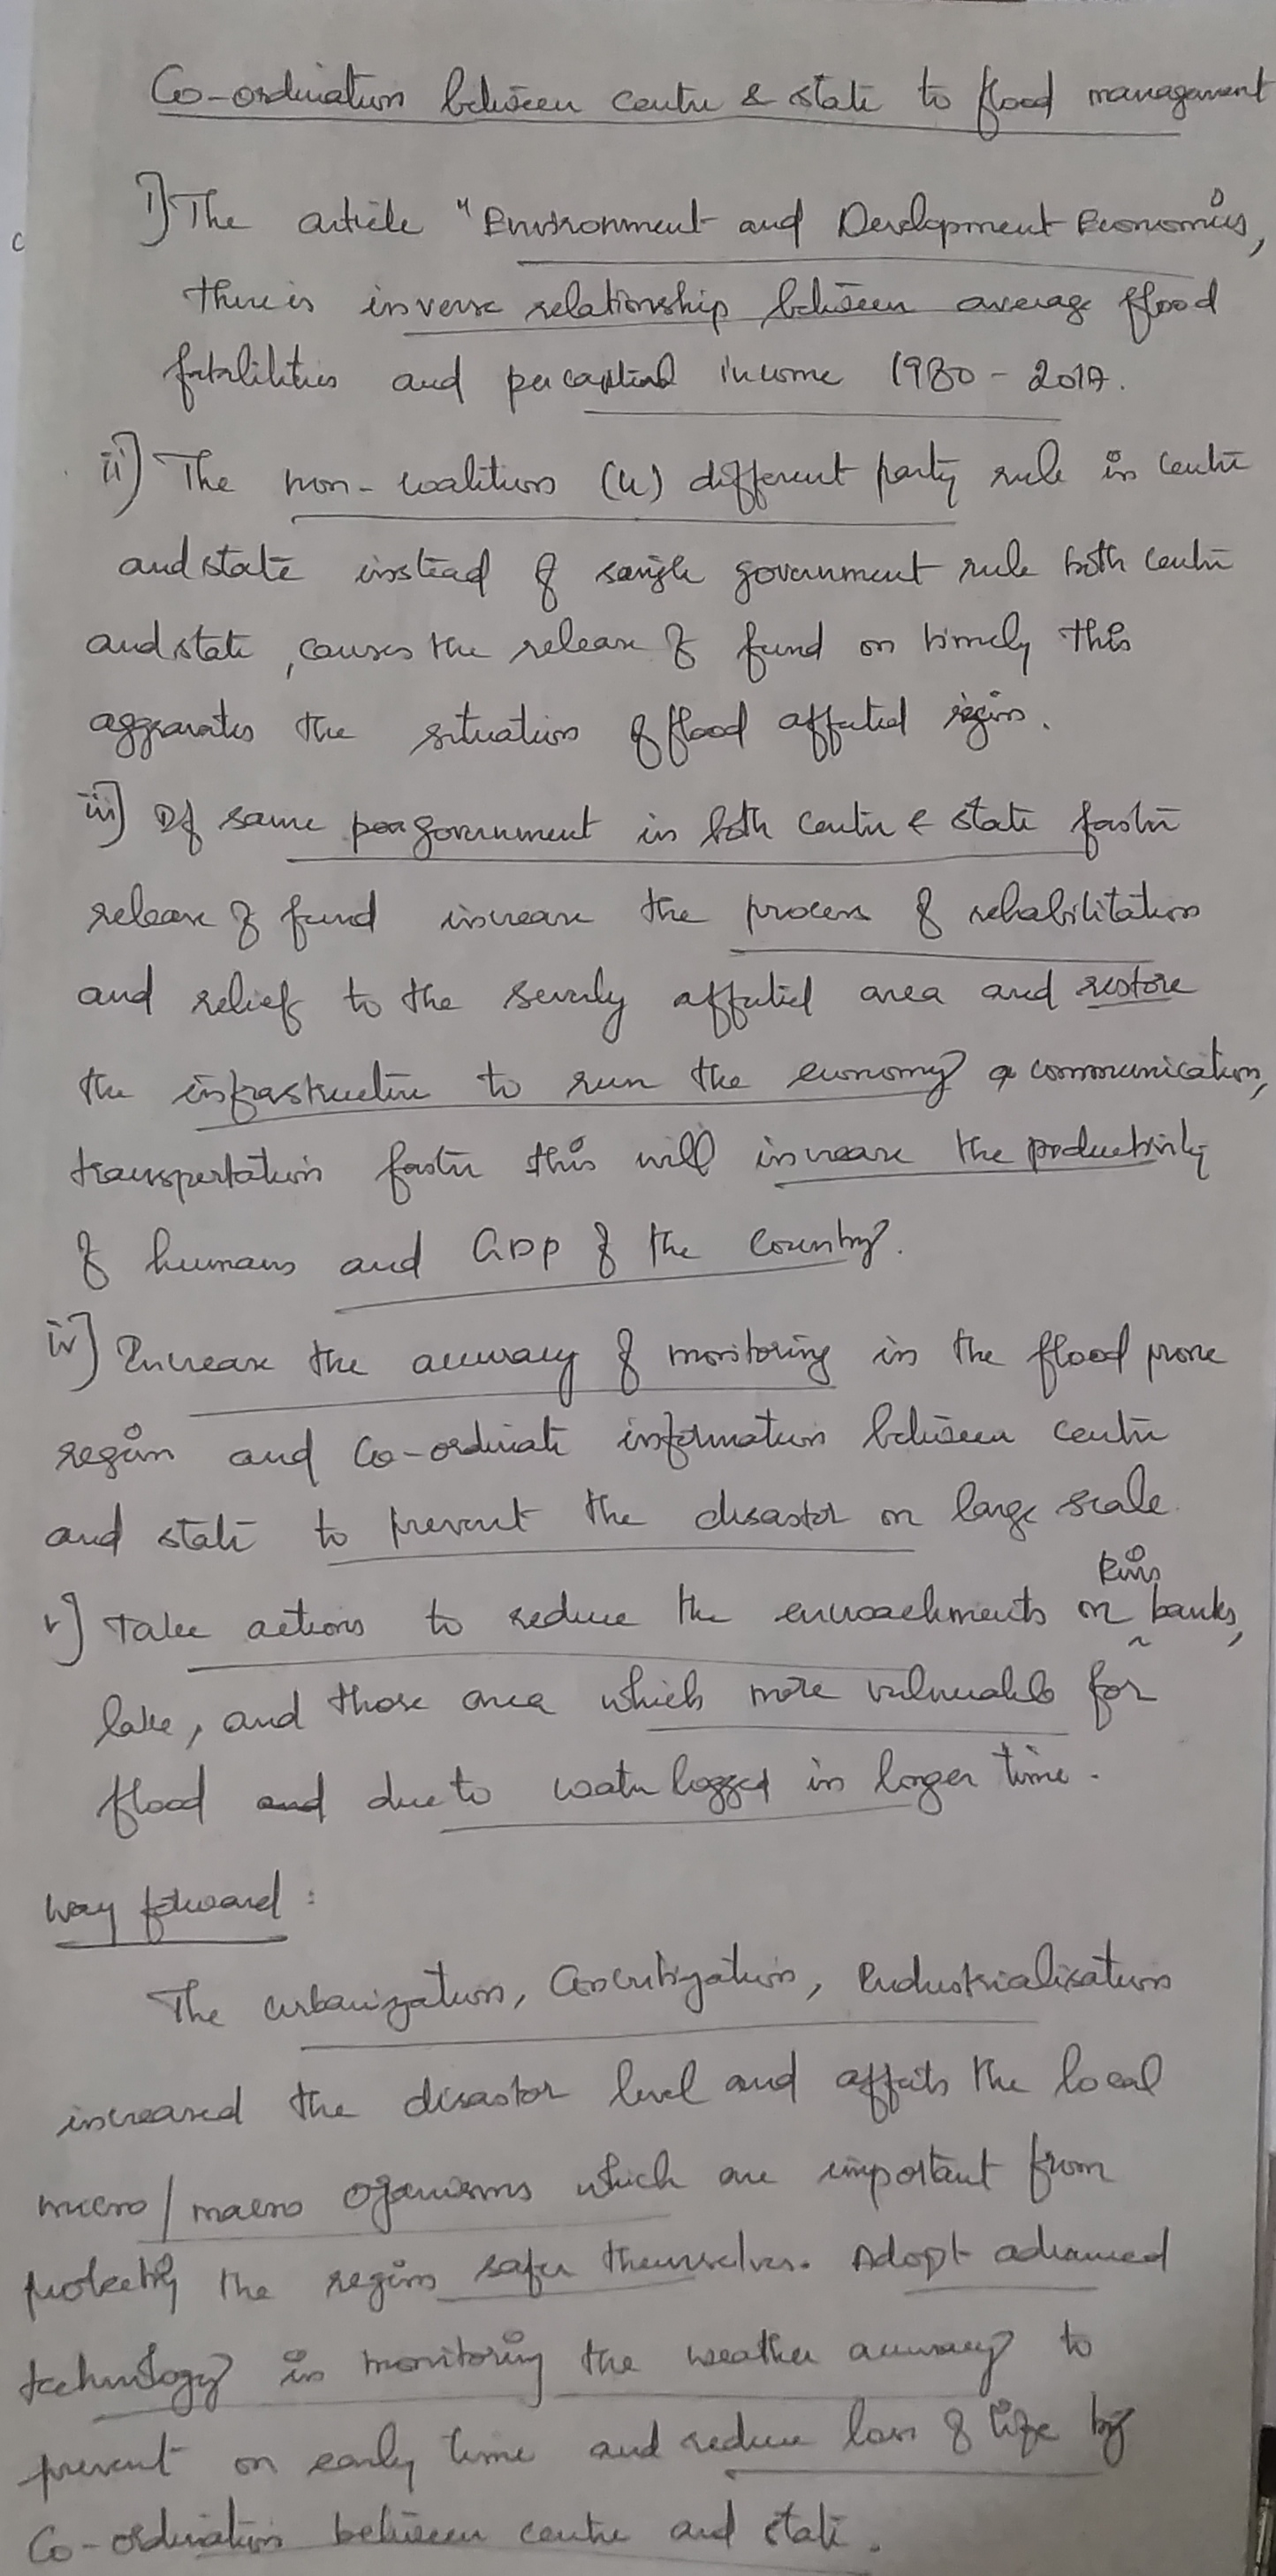 Co-ordination between centre & state to flood management
i) The article "Environment and Development Economics,
there is inverse relationship between average flood
fatalities and per capital income 1980 - 2017.
ii) The non-coalition (u) different party rule in centre
and state instead of single government rule both centre
and state, causes the release of fund on timely this
aggravates the situation of flood affected region.
iii) If same government in both centre & state faster
release of fund increase the process of rehabilitation
and relief to the severly affected area and restore
the infrastructure to run the economy & communication,
transpertation faster this will increase the productivity
of humans and GDP of the country.
iv) Increase the accuracy of monitoring in the flood prone
region and co-ordinate information between centre
and state to prevent the disastor on large scale.
v) Take actions to reduce the encroachments on river banks,
lake, and those area which more vulnerable for
flood due to water logged in longer time.
Way forward :
The urbanization, Industrialisation
increased the disastor level and affects the local
micro/macro organisms which are important from
protecting the region safer themselves. Adopt advanced
technology in monitoring the weather accuracy to
prevent on early time and reduce loss of life by
Co-ordination between centre and state.